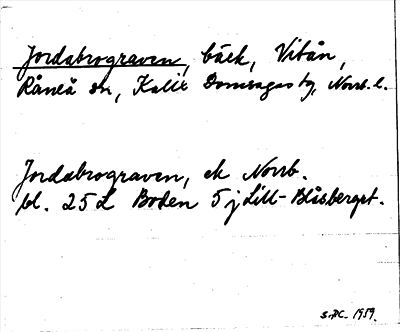 Jordabrograven, bäck, Vitån,
Råneå sn, Kalix Domsagas tg, Norrb. l.
Jordabrograven, ek Norrb.
bl. 25 L Boden 5 j Lill-Blåsberget.
1959.